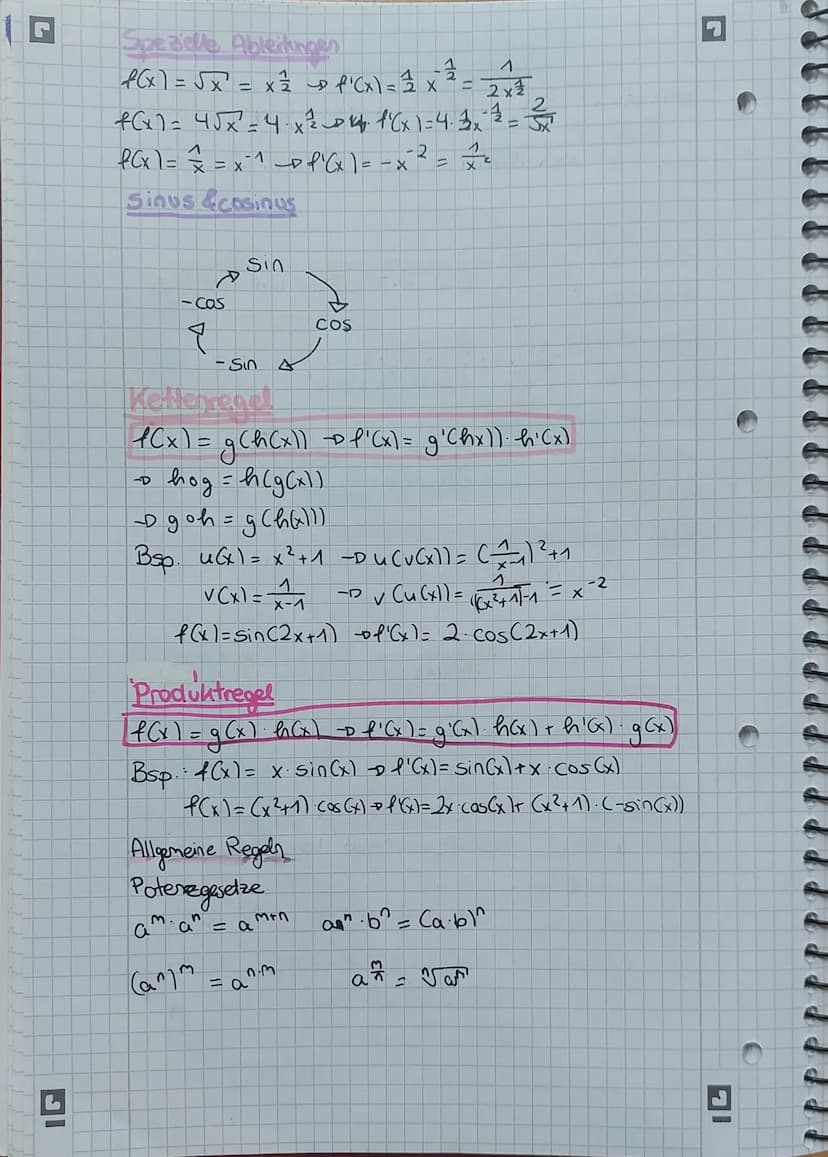 Spezielle Ableitungen
f(x) = √x = x^(1/2) → f'(x) = 1/2 x^(-1/2) = 1/(2x^(1/2))
f(x) = 4√x = 4·x^(1/2) → f'(x) = 4·1/2x^(-1/2) = 2/√x
f(x) = 1/x = x^(-1) → f'(x) = -x^(-2) = 1/x²
Sinus & cosinus
sin
-cos
cos
-sin
Kettenregel
f(x) = g(h(x)) → f'(x) = g'(hx))·h'(x)
→ h∘g = h(g(x))
→ g∘h = g(h(x)))
Bsp. u(x) = x²+1 → u(v(x)) = (1/(x-1))²+1
v(x) = 1/(x-1) → v(u(x)) = 1/((x²+1)-1) = x^(-2)
f(x) = sin(2x+1) → f'(x) = 2·cos(2x+1)
Produktregel
f(x) = g(x)·h(x) → f'(x) = g'(x)·h(x) + h'(x)·g(x)
Bsp.: f(x) = x·sin(x) → f'(x) = sin(x)+x·cos(x)
f(x) = (x²+1)·cos(x) → f'(x) = 2x·cos(x)+(x²+1)·(-sin(x))
Allgemeine Regeln
Potenzgesetze
a^m·a^n = a^(m+n) a^n·b^n = (a·b)^n
(a^n)^m = a^(n·m) a^(m/n) = ⁿ√a^m